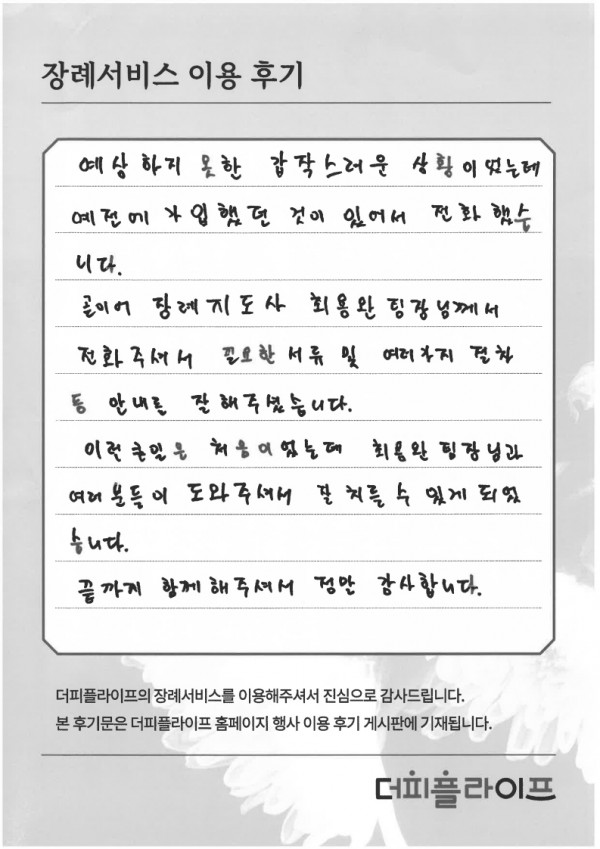 장례서비스 이용 후기
예상하지 못한 갑작스러운 상황이었는데
예전에 가입했던 것이 있어서 전화했습
니다.
곧이어 장례지도사 최용완 팀장님께서
전화주셔서 필요한 서류 및 여러가지 절차
등 안내를 잘해주셨습니다.
이런 큰일은 처음이었는데 최용완 팀장님과
여러분들이 도와주셔서 잘 치를 수 있게 되었
습니다.
끝까지 함께해주셔서 정말 감사합니다.
더피플라이프의 장례서비스를 이용해주셔서 진심으로 감사드립니다.
본 후기문은 더피플라이프 홈페이지 행사 이용 후기 게시판에 기재됩니다.
더피플라이프